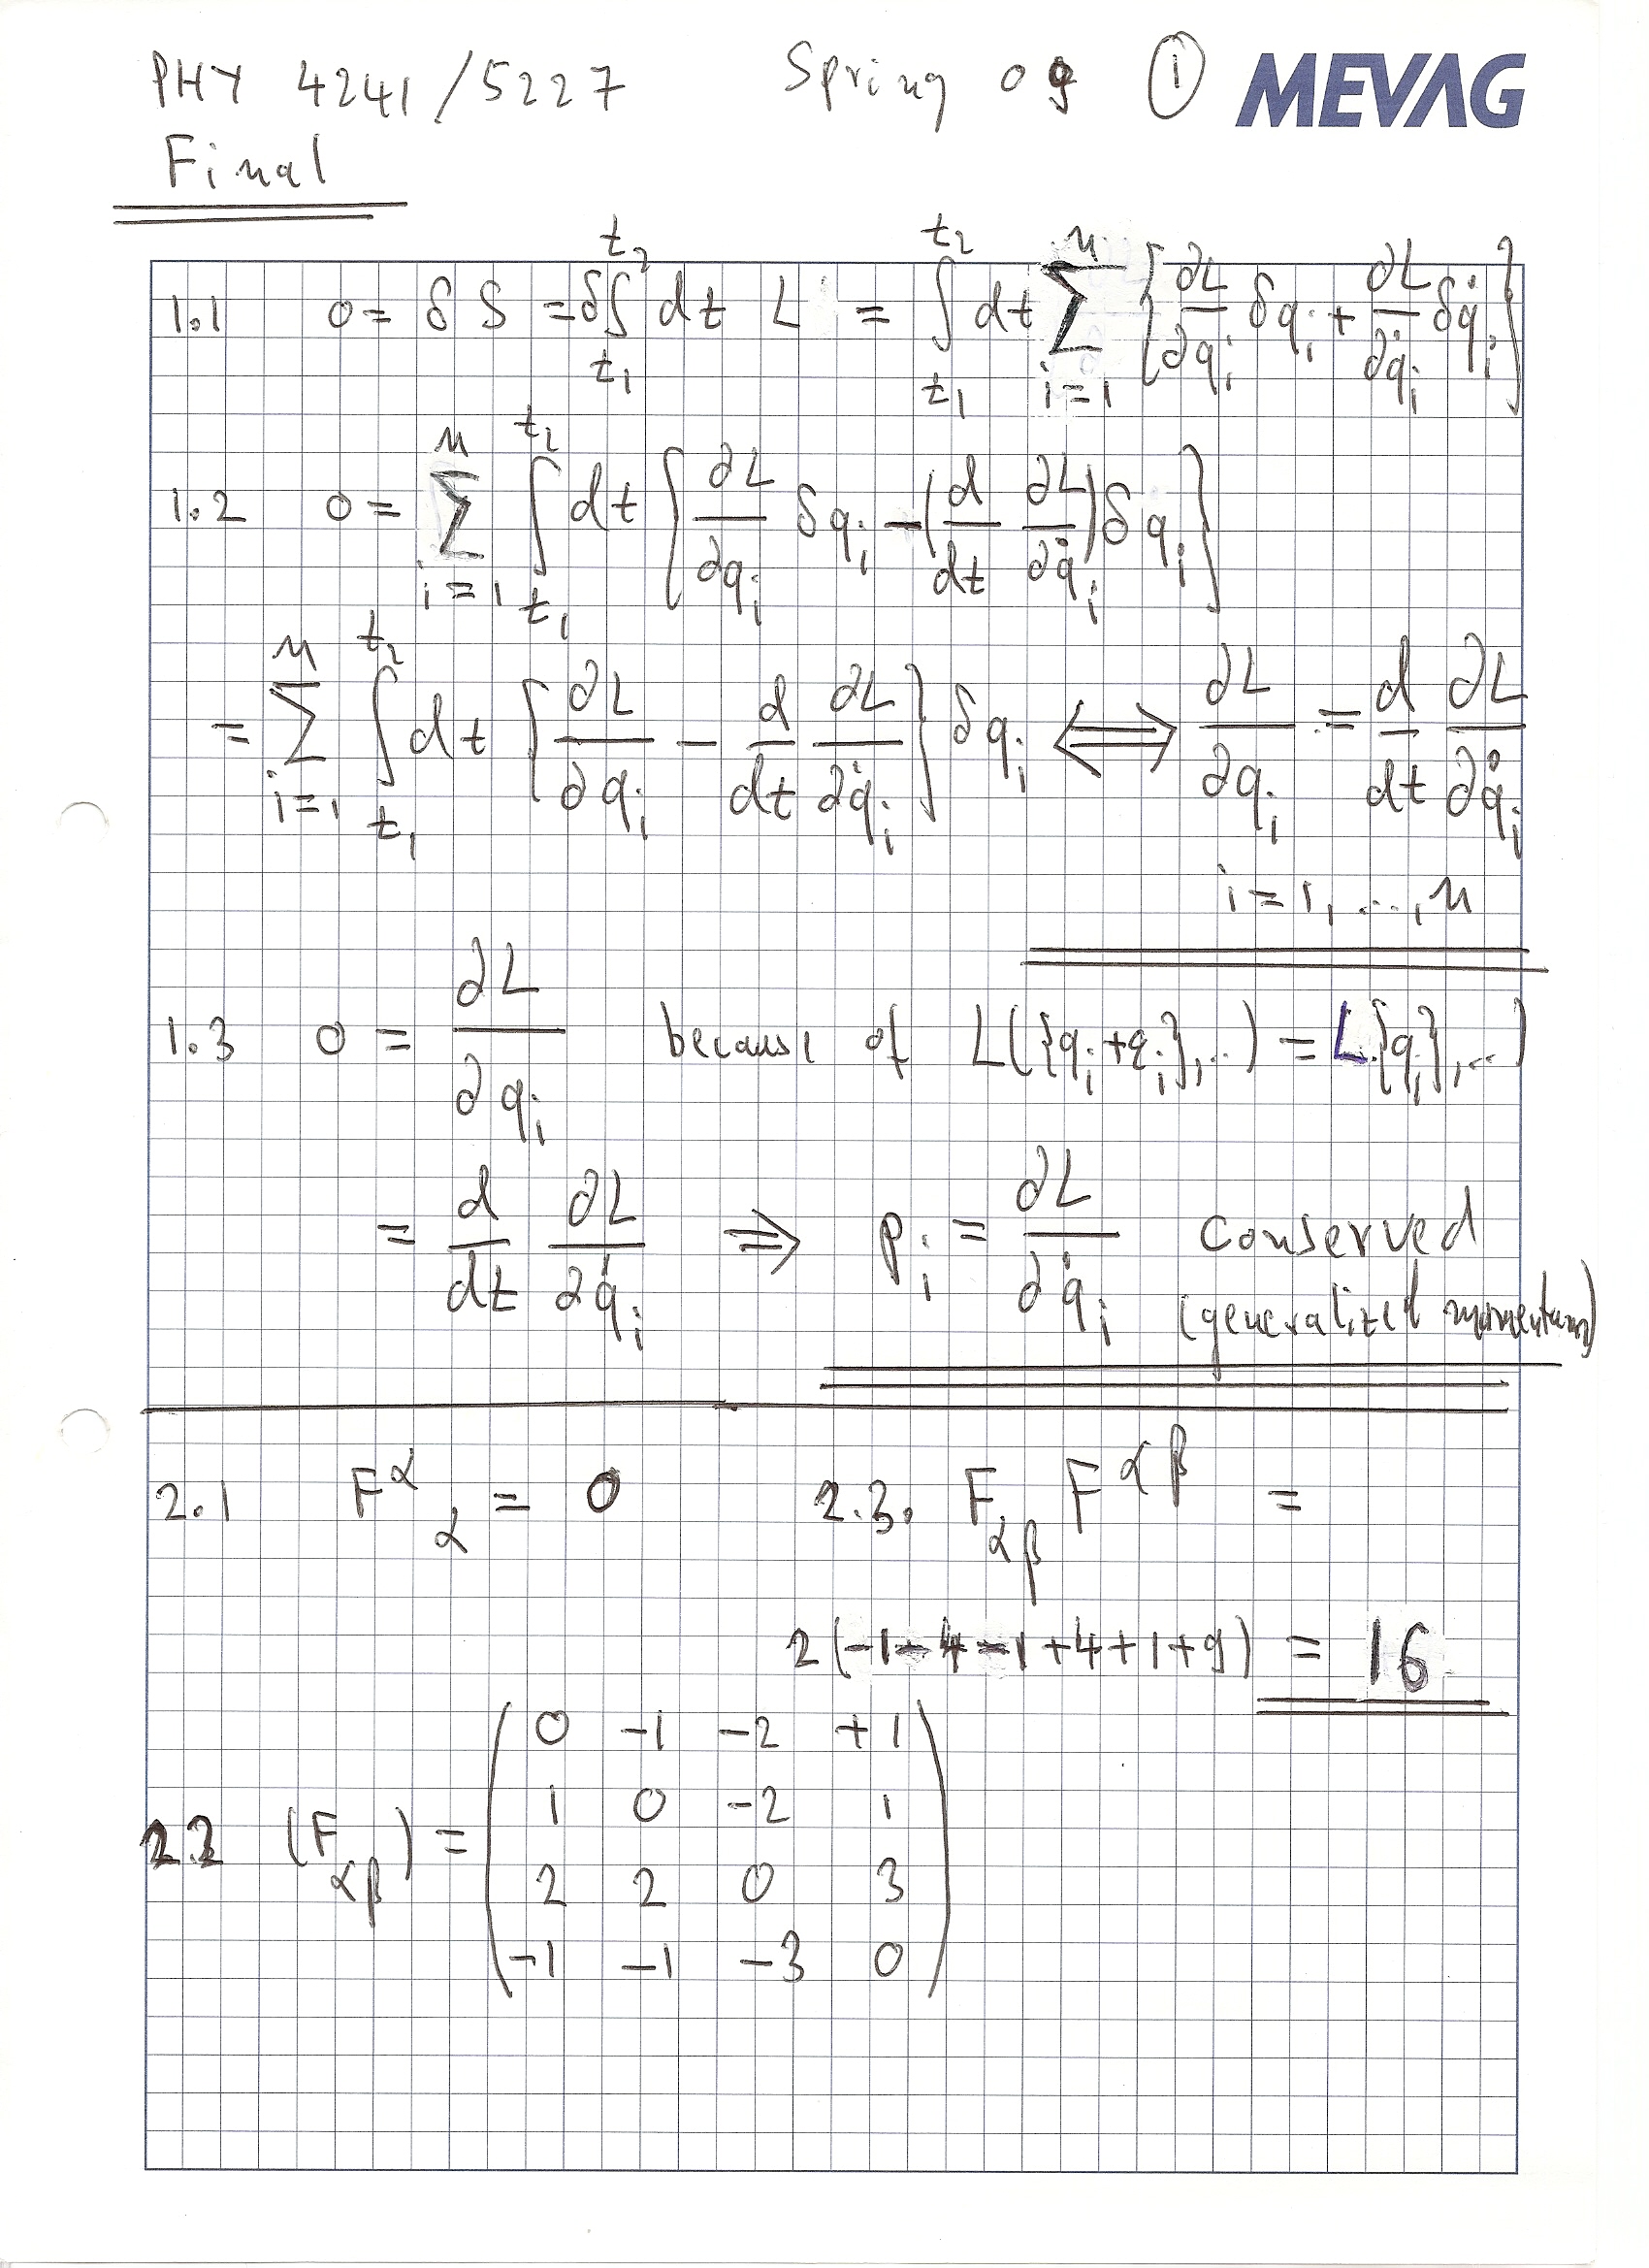 PHY 4241/5227 Spring 09 ① MEVAG
Final
1.1 0 = δS = δ∫_{t₁}^{t₂} dt L = ∫_{t₁}^{t₂} dt ∑_{i=1}^{n} {∂L/∂qᵢ δqᵢ + ∂L/∂q̇ᵢ δq̇ᵢ}
1.2 0 = ∑_{i=1}^{n} ∫_{t₁}^{t₂} dt {∂L/∂qᵢ δqᵢ − (d/dt ∂L/∂q̇ᵢ) δqᵢ}
= ∑_{i=1}^{n} ∫_{t₁}^{t₂} dt {∂L/∂qᵢ − d/dt ∂L/∂q̇ᵢ} δqᵢ ⟺ ∂L/∂qᵢ = d/dt ∂L/∂q̇ᵢ
i = 1, ..., n
1.3 0 = ∂L/∂qᵢ because of L({qᵢ+εᵢ},...) = L{qᵢ},...)
= d/dt ∂L/∂q̇ᵢ ⇒ pᵢ = ∂L/∂q̇ᵢ conserved
(generalized momentum)
2.1 F^α_α = 0 2.3. F_{αβ} F^{αβ} =
2(-1-4-1+4+1+9) = 16
2.2 (F_{αβ}) =
0 -1 -2 +1
1 0 -2 1
2 2 0 3
-1 -1 -3 0